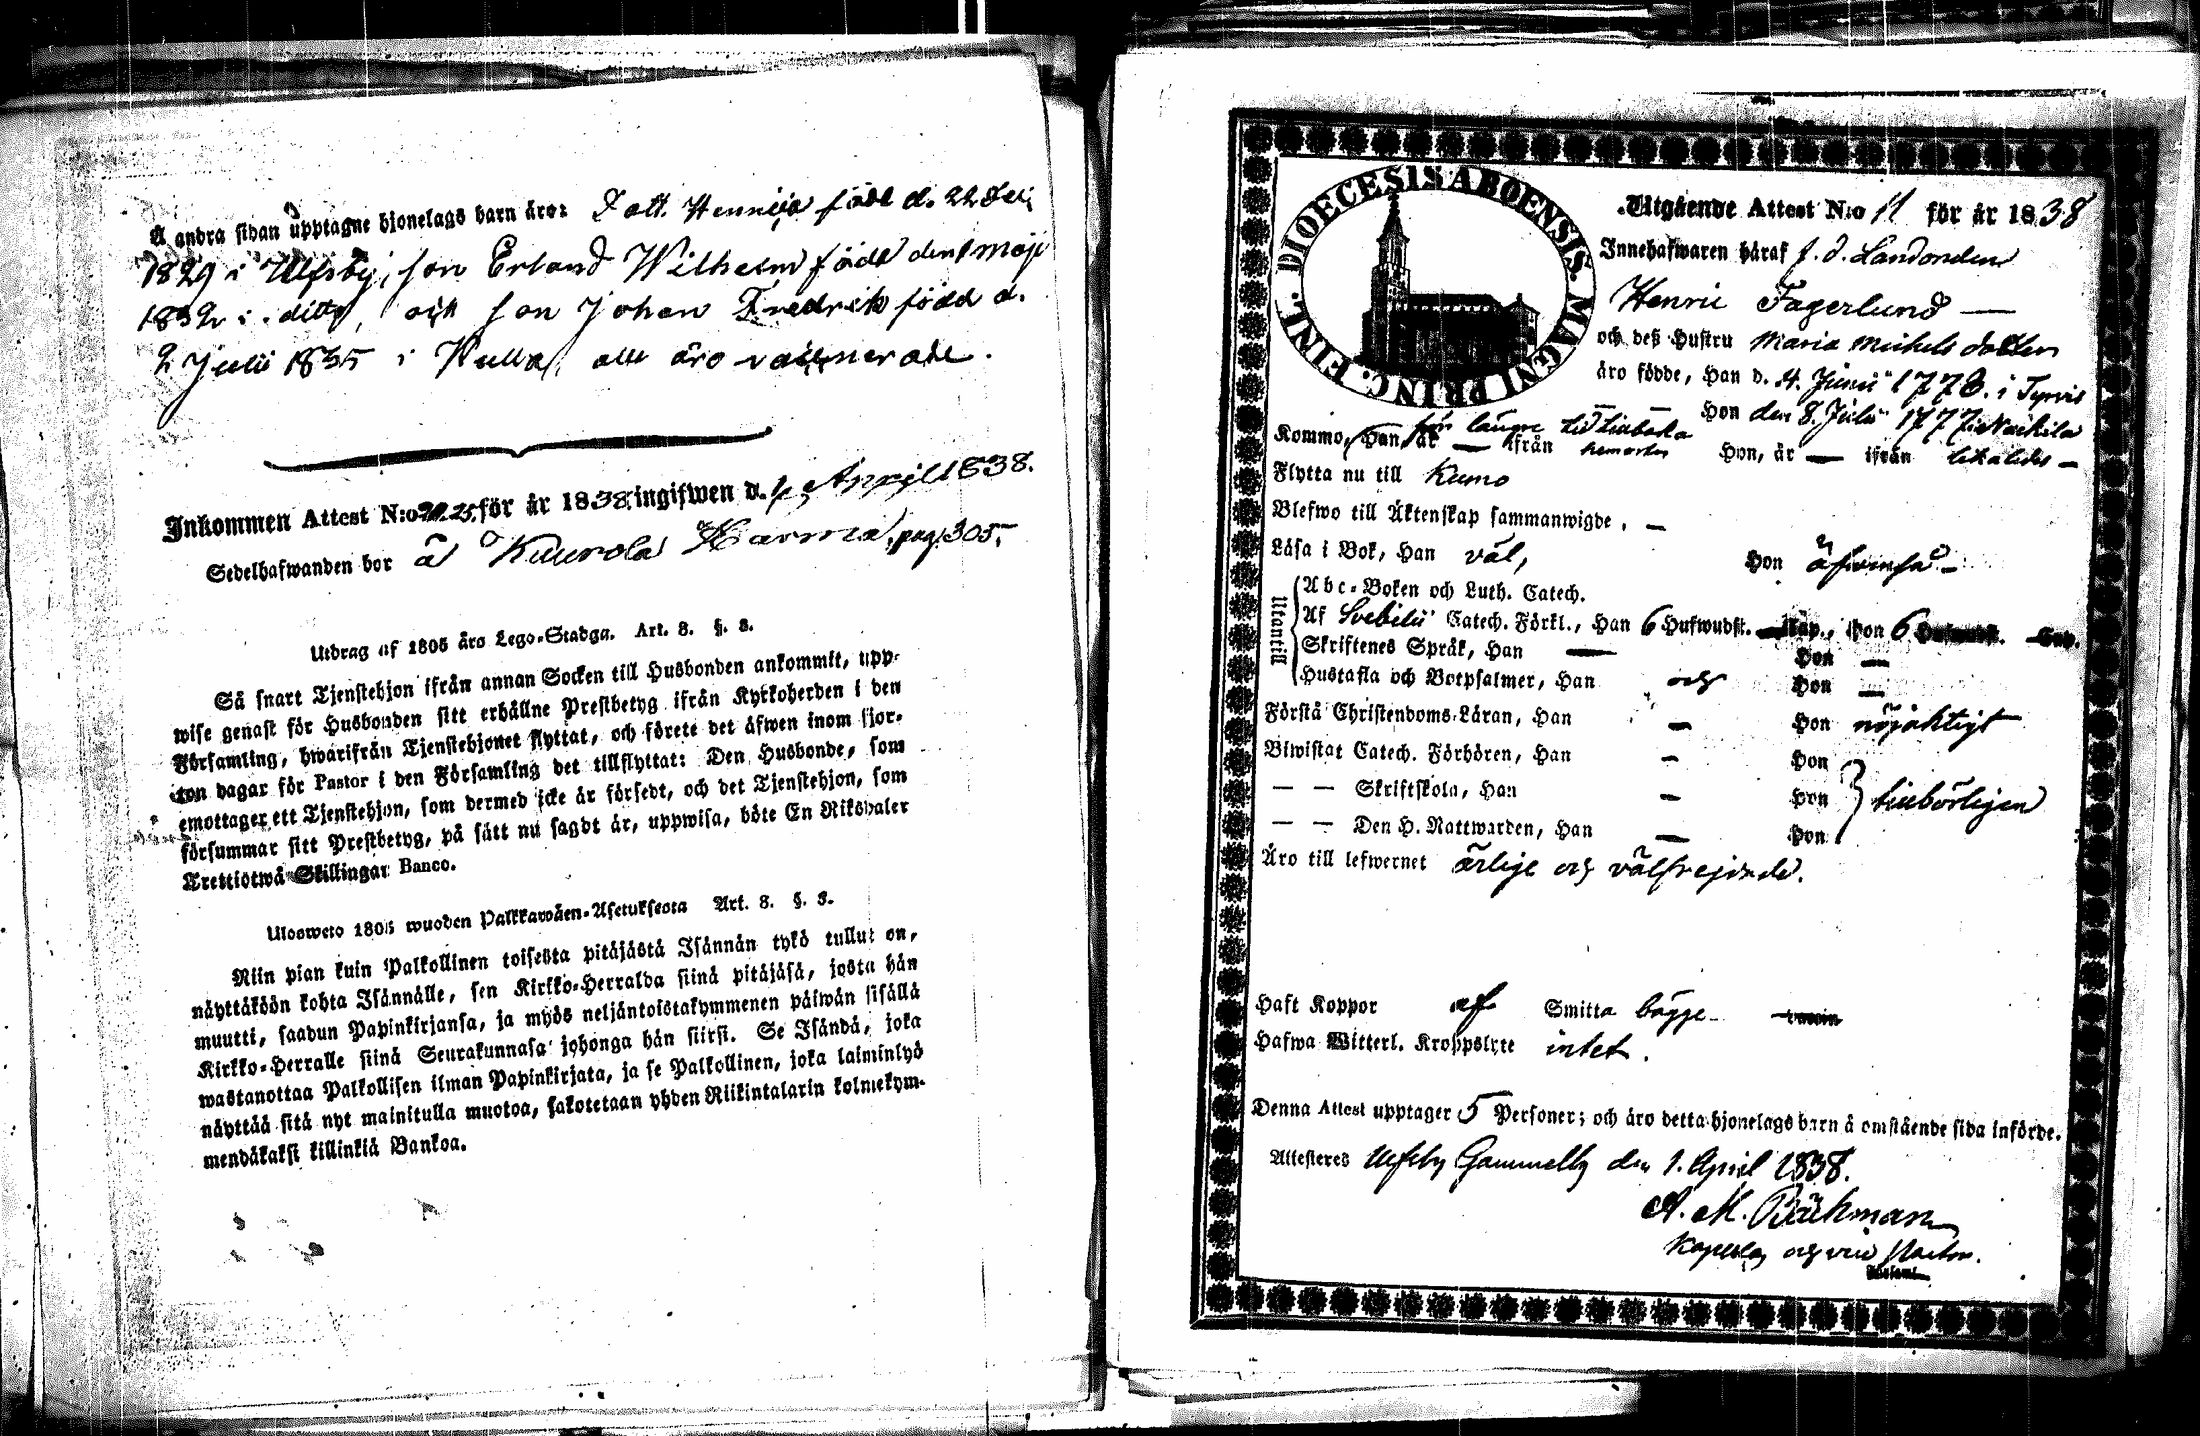 Å andra sidan upptagne hjonelags barn äro: Dott. Henrica född d. 22
1829 i Ulfsby, son Erland Wilhelm född den 1 maji
1832 i ditto, och son Johan Fredrik född d.
2 Julii 1835 i Kulla, alla äro vaccinerade.
Inkommen Attest N:o 25. för år 1838. ingifwen d. April 1838.
Sedelhafwanden bor å Kuurola Harma, pag. 305.
Utdrag af 1805 års Lego-Stadga. Art. 3. §. 3.
Så snart Tjenstehjon ifrån annan Socken till Husbonden ankommit, upp-
wise genast för Husbonden sitt erhållne Prestbetyg ifrån Kyrkoherden i den
Församling, hwarifrån Tjenstehjonet flyttat, och förete det äfwen inom fjor-
ton dagar för Pastor i den Församling det tillflyttat: Den Husbonde, som
emottager ett Tjenstehjon, som dermed icke är försedt, och det Tjenstehjon, som
försummar sitt Prestbetyg, på sätt nu sagdt är, uppwisa, böte En Riksdaler
Trettiotwå Skillingar Banco.
Ulosweto 1805 wuoden Palkkawäen-Asetuksesta Art. 3. §. 3.
Niin pian kuin Palkollinen toisesta pitäjästä Isännän tykö tullut on,
näyttäköön kohta Isännälle, sen Kirkko-Herralda siinä pitäjäsä, josta hän
muutti, saadun Papinkirjansa, ja myös neljäntoistakymmenen päiwän sisällä
Kirkko-Herralle siinä Seurakunnasa johonga hän siirsi. Se Isändä, joka
wastanottaa Palkollisen ilman Papinkirjata, ja se Palkollinen, joka laiminlyö
näyttää sitä nyt mainitulla muotoa, sakotetaan yhden Riikintalarin kolmekym-
mendäkaksi killinkiä Bankoa.
DIOECESIS ABOENSIS. MAGNI PRINC. FINL.
Utgående Attest N:o 11 för år 1838
Innehafwaren häraf f. d. Landbonden
Henric Fagerlund —
och deß Hustru Maria Michels dotter
äro födde, Han d. 4. Junii 1778. i Tyrvis
Hon den 8. Julii 1777. i
Kommo, Han, är för längre tid tillbaka — ifrån Hon, är — ifrån likaledes —
Flytta nu till Kumo
Blefwo till Äktenskap sammanwigde, —
Läsa i Bok, Han väl, Hon äfvenså —
Utantill
Abc-Boken och Luth. Catech.
Af Svebilii Catech. Förkl., Han 6 Hufwudst. — Kap., Hon 6 Hufwudst. — Cap.
Skriftenes Språk, Han — Hon —
Hustafla och Botpsalmer, Han och Hon —
Förstå Christendoms-Läran, Han — Hon nöjaktigt
Biwistat Catech. Förhören, Han — Hon
— — Skriftskola, Han — Hon tillbörligen
— — Den H. Nattwarden, Han — Hon
Äro till lefwernet ärlige och välfrejdade.
Haft Koppor af Smitta bägge —
Hafwa Witterl. Kroppslyte intet.
Denna Attest upptager 5 Personer; och äro detta hjonelags barn å omstående sida införde.
Attesteres Ulfsby Gammelby den 1. April 1838.
A. M. Bäckman
Kapellan och vice Pastor.